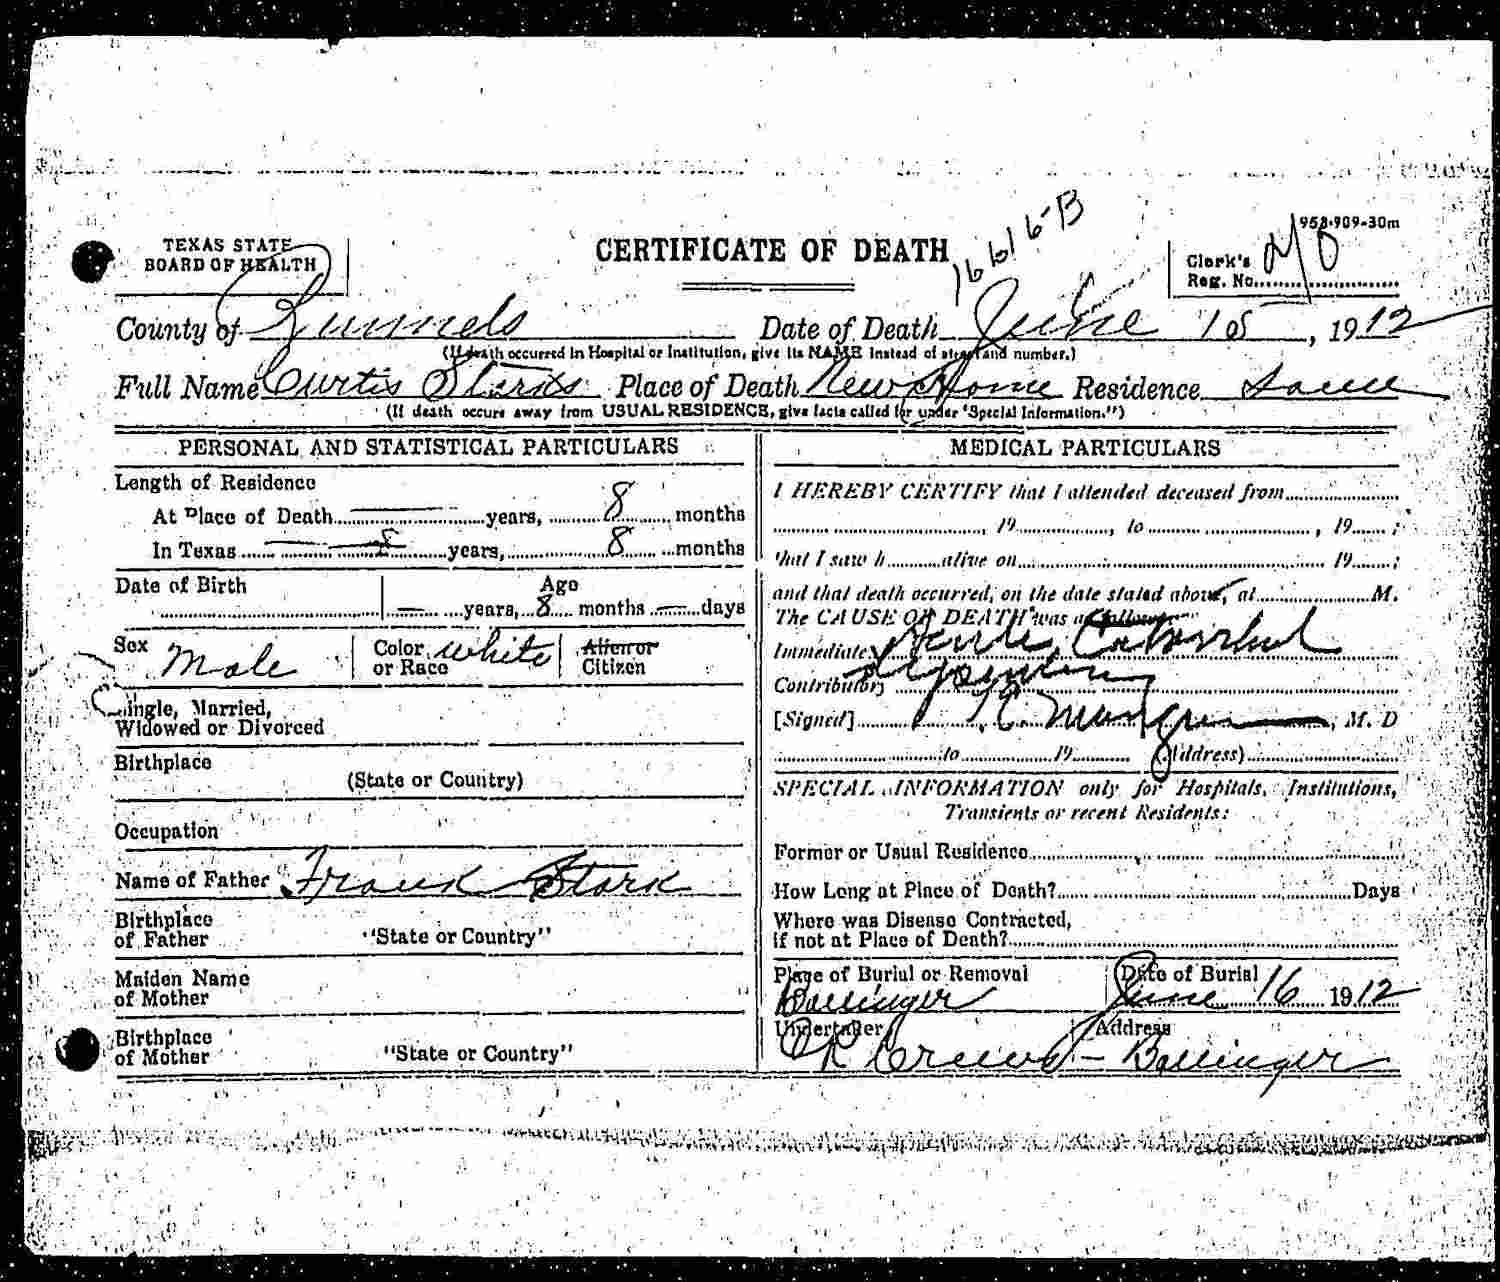 958-909-30m
16616-B
TEXAS STATE
BOARD OF HEALTH
CERTIFICATE OF DEATH
Clerk's
Reg. No.
County of Runnels Date of Death June 15, 1912
(If death occurred in Hospital or Institution, give its NAME instead of street and number.)
Full Name Curtis Place of Death New Home Residence Same
(If death occurs away from USUAL RESIDENCE, give facts called for under "Special Information.")
PERSONAL AND STATISTICAL PARTICULARS
Length of Residence
At Place of Death — years, 8 months
In Texas — years, 8 months
Date of Birth Age
— years, 8 months — days
Sex Male Color or Race white Alien or Citizen
Single, Married,
Widowed or Divorced
Birthplace
(State or Country)
Occupation
Name of Father Frank Stark
Birthplace
of Father "State or Country"
Maiden Name
of Mother
Birthplace
of Mother "State or Country"
MEDICAL PARTICULARS
I HEREBY CERTIFY that I attended deceased from
, 19 , to , 19 ;
that I saw h alive on 19 ;
and that death occurred, on the date stated above, at M.
The CAUSE OF DEATH was as follows:
Immediate Acute Catarrhal
Contributory
[Signed] , M. D
to 19 (Address)
SPECIAL INFORMATION only for Hospitals, Institutions,
Transients or recent Residents:
Former or Usual Residence
How Long at Place of Death? Days
Where was Disease Contracted,
if not at Place of Death?
Place of Burial or Removal Date of Burial June 16 1912
Ballinger
Undertaker Address
Crews - Ballinger